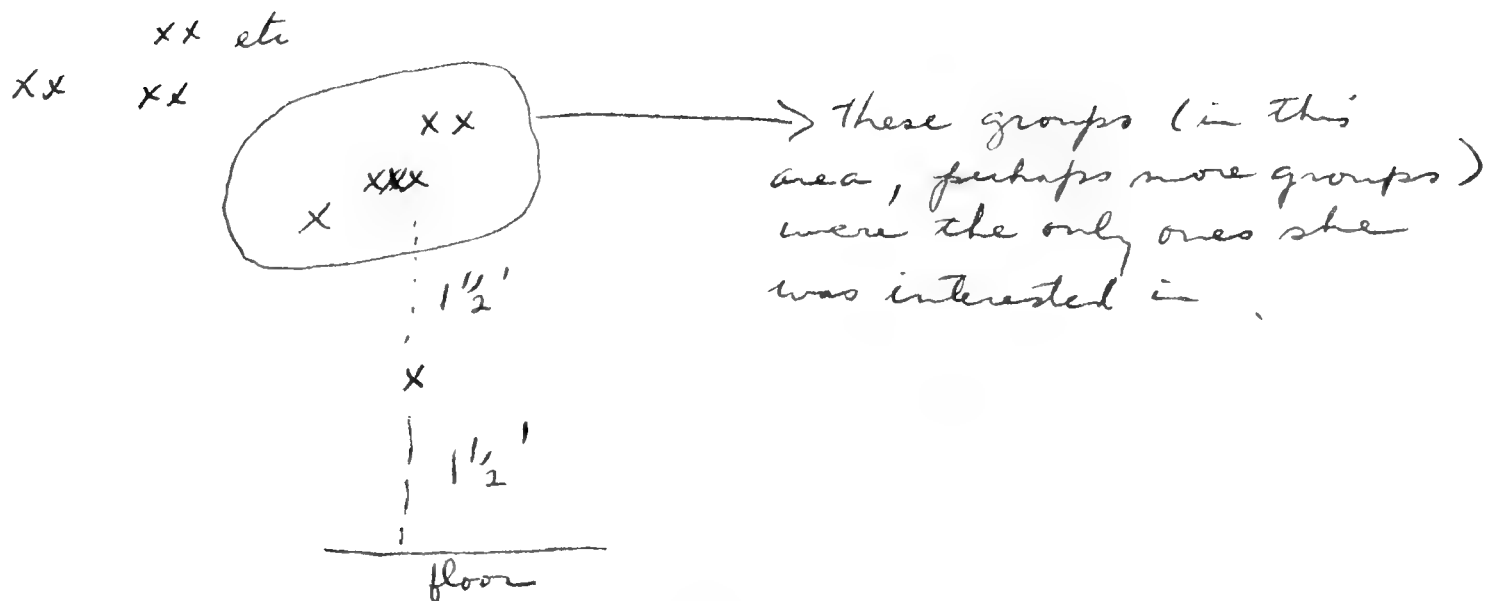 xx etc
xx xx
xx
xxxx
x
These groups (in this
area, perhaps more groups)
were the only ones she
was interested in.
1 1/2'
x
1 1/2'
floor